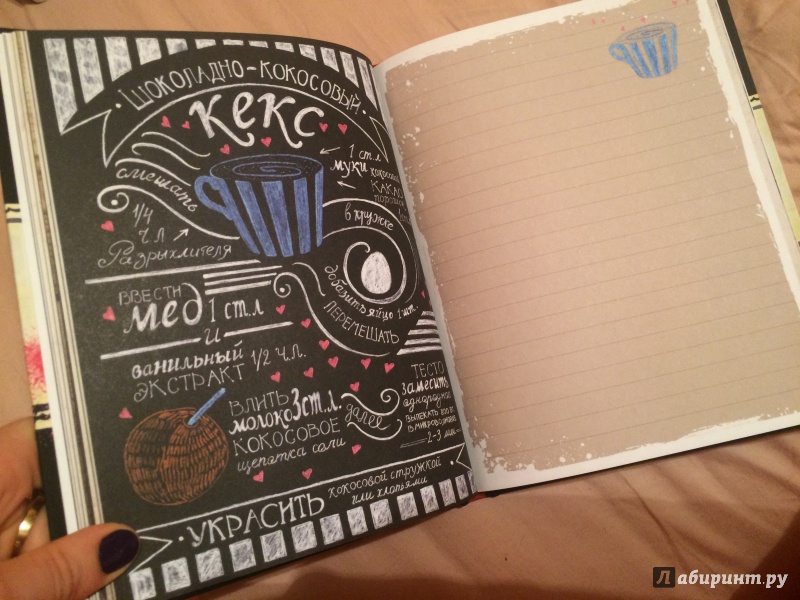 Шоколадно-кокосовый
кекс
смешать
1 ст.л
муки кокосовой
какао
порошок
в кружке
1/4
ч.л
Разрыхлителя
добавить яйцо 1 шт.
перемешать
ввести
мед 1 ст.л
и
ванильный 1/2 ч.л.
экстракт
влить
молоко 3 ст.л.
кокосовое
щепотка соли
далее
тесто
замесить
выпекать
в микроволновке
2-3 мин
украсить кокосовой стружкой
или хлопьями
Лабиринт.ру